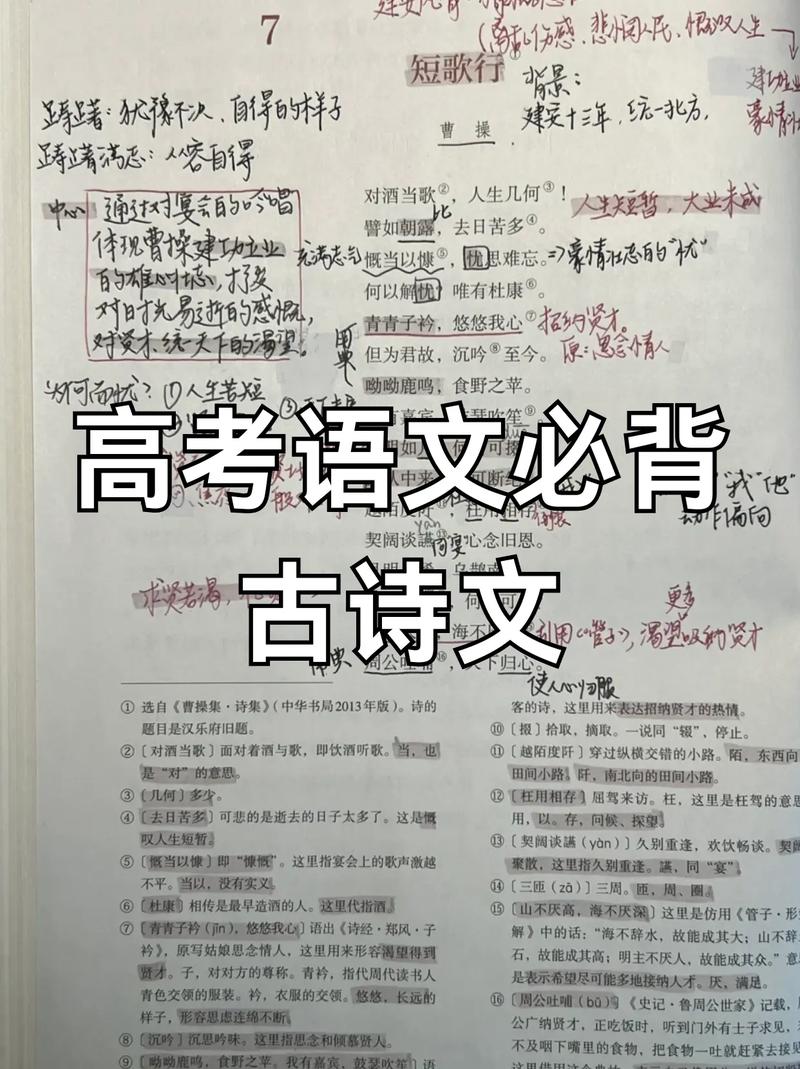 7
短歌行
曹操
背景：
建安十三年，统一北方，
踌躇：犹豫不决、自得的样子
踌躇满志：从容自得
中心
通过对宴会的吟唱
体现曹操建功立业
的雄心壮志，抒发
对时光易逝的感慨，
对贤才、统一天下的渴望。
对酒当歌②，人生几何③！
人生短暂，大业未成
比
譬如朝露，去日苦多④。
慨当以慷⑤，忧思难忘。
充满志气
⇒豪情壮志的“忧”
何以解忧？唯有杜康⑥。
青青子衿，悠悠我心⑦
招纳贤才。
但为君故，沉吟⑧至今。
原：思念情人
呦呦鹿鸣，食野之苹。
为何而忧？①人生苦短
高考语文必背
古诗文
“我”“他”
动作偏向
契阔谈讌，心念旧恩。
yàn
同宴
求贤若渴，
更多
利用《管子》，渴望吸纳贤才
周公吐哺⑯，天下归心。
使人心归服
①选自《曹操集·诗集》（中华书局2013年版）。诗的
题目是汉乐府旧题。
②〔对酒当歌〕面对着酒与歌，即饮酒听歌。当，也
是“对”的意思。
③〔几何〕多少。
④〔去日苦多〕可悲的是逝去的日子太多了。这是慨
叹人生短暂。
⑤〔慨当以慷〕即“慷慨”。这里指宴会上的歌声激越
不平。当以，没有实义。
⑥〔杜康〕相传是最早造酒的人。这里代指酒。
⑦〔青青子衿（jīn），悠悠我心〕语出《诗经·郑风·子
衿》，原写姑娘思念情人，这里用来形容渴望得到
贤才。子，对对方的尊称。青衿，指代周代读书人
青色交领的服装。衿，衣服的交领。悠悠，长远的
样子，形容思虑连绵不断。
⑧〔沉吟〕沉思吟味。这里指思念和倾慕贤人。
⑨〔呦呦鹿鸣，食野之苹。我有嘉宾，鼓瑟吹笙〕语
客的诗，这里用来表达招纳贤才的热情。
⑩〔掇〕拾取，摘取。一说同“辍”，停止。
⑪〔越陌度阡〕穿过纵横交错的小路。陌，东西向
田间小路。阡，南北向的田间小路。
⑫〔枉用相存〕屈驾来访。枉，这里是枉驾的意思
用，以。存，问候、探望。
⑬〔契阔谈讌（yàn）〕久别重逢，欢饮畅谈。契
聚散，这里指久别重逢。讌，同“宴”。
⑭〔三匝（zā）〕三周。匝，周、圈。
⑮〔山不厌高，海不厌深〕这里是仿用《管子·形
解》中的话：“海不辞水，故能成其大；山不辞
石，故能成其高；明主不厌人，故能成其众。”意
是表示希望尽可能多地接纳人才。厌，满足。
⑯〔周公吐哺（bǔ）〕《史记·鲁周公世家》记载，周
公广纳贤才，正吃饭时，听到门外有士子求见，
不及咽下嘴里的食物，把食物一吐就赶紧去接见